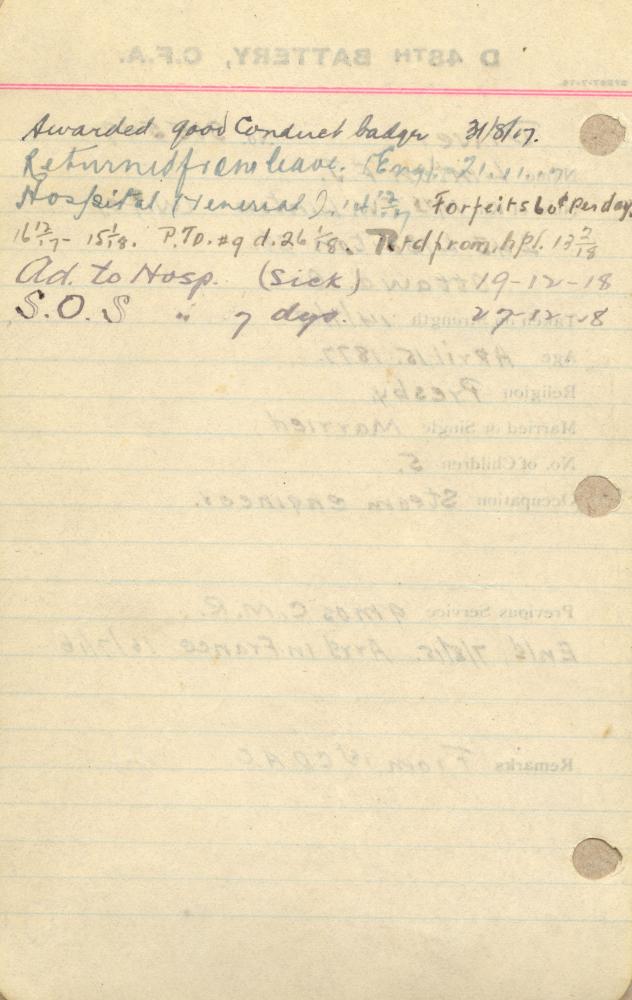 Awarded good Conduct badge 31/8/17.
Returned from leave. (Eng.) 21.11.17
Hospital (Venerial) 14 12/17 Forfeits 60¢ Per day
16 12/17 - 15 1/18. P.T.O. #9 d. 26 1/18. Rt'd from hpl. 13 2/18
Ad. to Hosp. (Sick) 19-12-18
S.O.S " 7 dys. 27-12-8